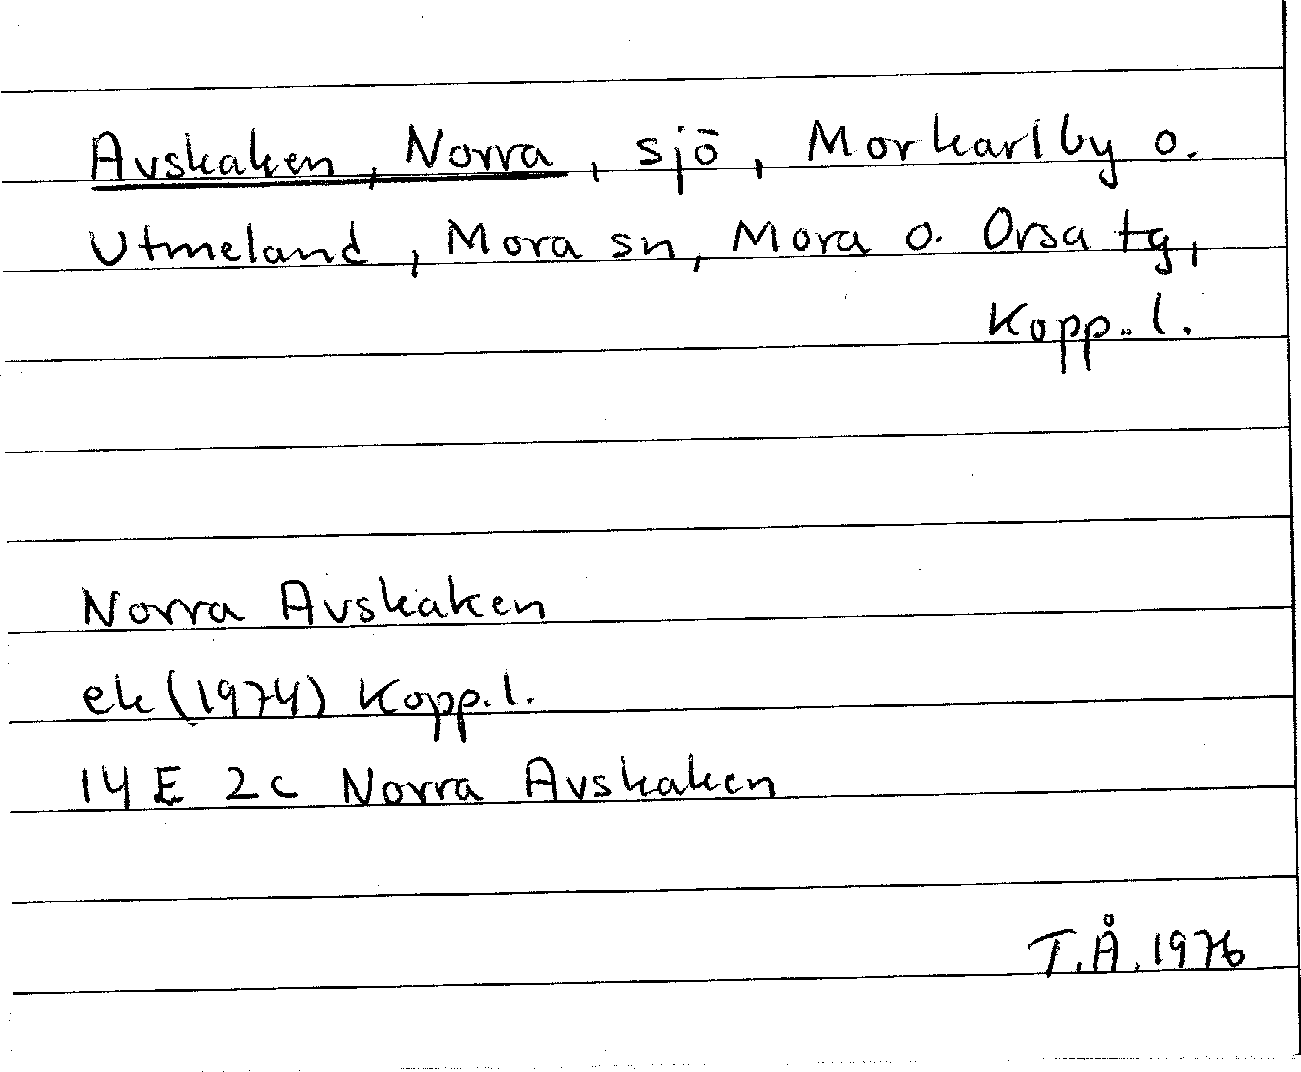 Avskaken, Norra, sjö, Morkarlby o.
Utmeland, Mora sn, Mora o. Orsa tg,
Kopp. l.
Norra Avskaken
ek (1974) Kopp. l.
14 E 2c Norra Avskaken
T.Å. 1976